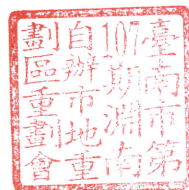 臺南市第
107期淵南
自辦市地重
劃區重劃會